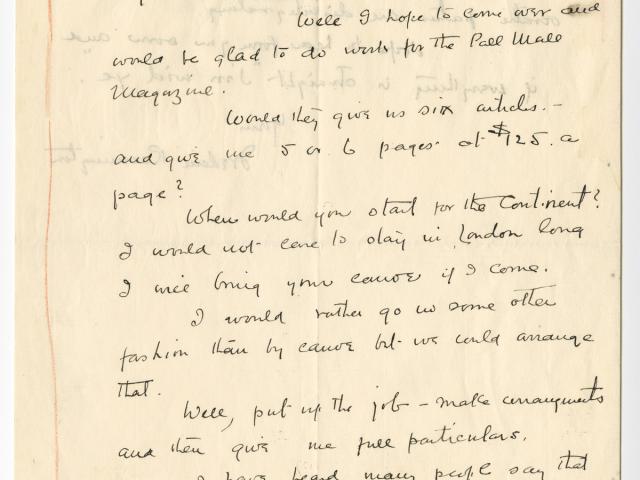 Well I hope to come over and
would be glad to do work for the Pall Mall
Magazine.
Would they give us six articles. –
and give me 5 or 6 pages at $125. a
page?
When would you start for the Continent?
I would not care to stay in London long
I will bring your canoe if I come.
I would rather go in some other
fashion than by canoe but we could arrange
that.
Well, put up the job – make arrangements
and then give me full particulars.
I have heard many people say that